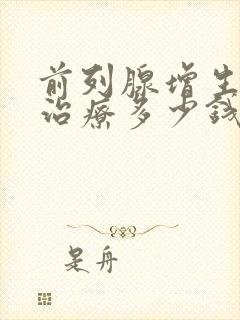 前列腺增生
治療多少錢
是舟